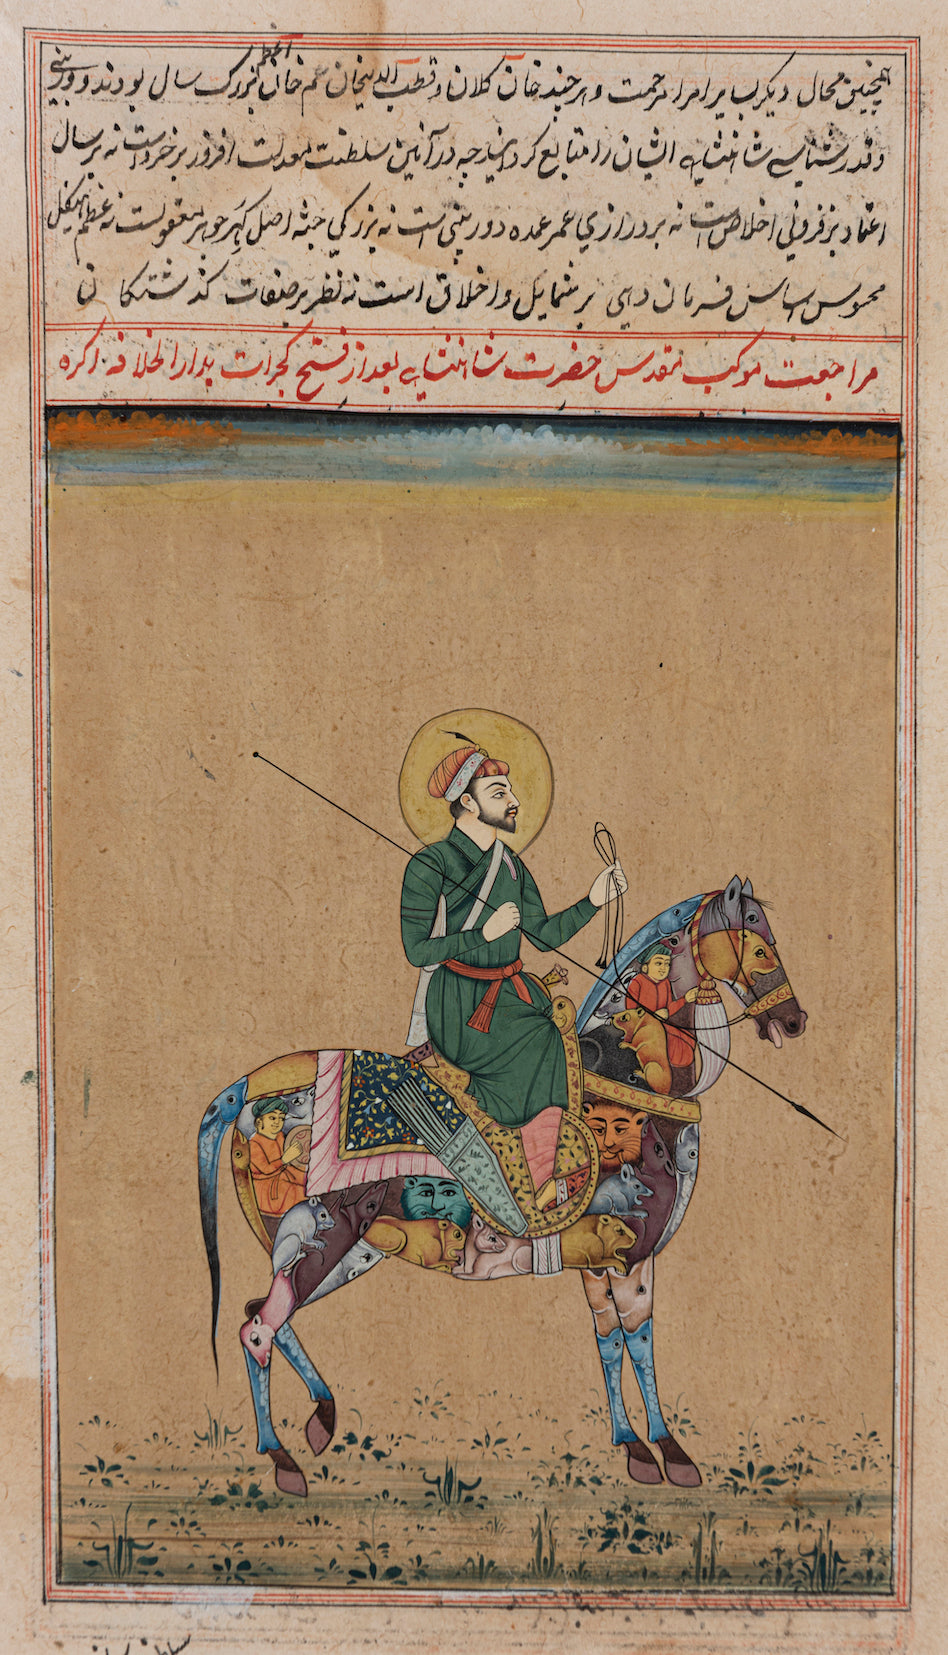 همچنین محال دیگر بسایر امرا مرحمت و هر چند خان کلان و قطب الدینخان عم خان اعظم بزرگ سال بودند و دوربینی
و قدرشناسی شاهنشاهی ایشان را متابع گردانید چه در آئین سلطنت معدلت افزور بر خرد است نه بر سال
اعتماد بر فزونی اخلاص است نه بر درازی عمر عمده دوربینی است نه بزرگی جثه اصل گهر جوهر معقولست نه عظم هیکل
محسوس اساس فرمان دهی بر شمایل و اخلاق است نه نظر بر صفات گذشتگان
مراجعت موکب مقدس حضرت شاهنشاهی بعد از فتح گجرات بدار الخلافه اگره